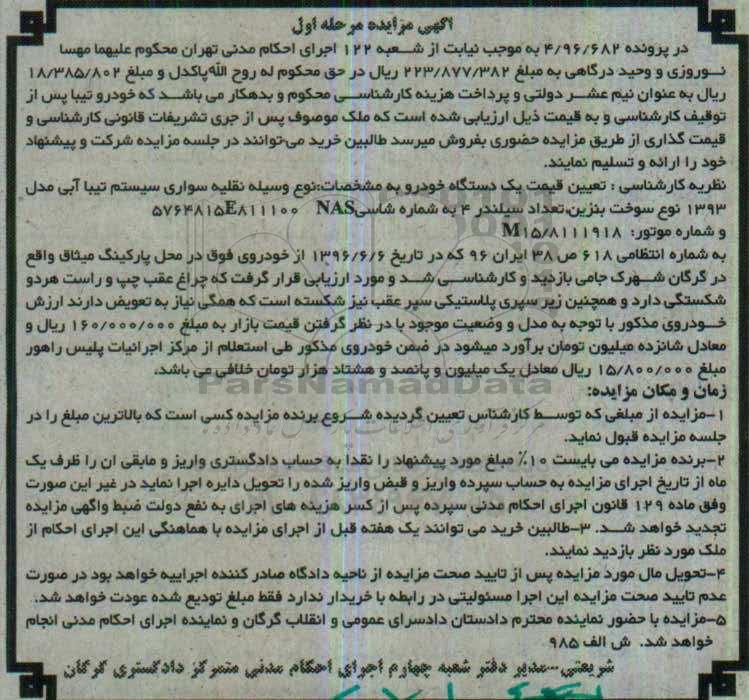 آگهی مزایده مرحله اول
در پرونده ۴/۹۶/۶۸۲ به موجب نیابت از شعبه ۱۲۲ اجرای احکام مدنی تهران محکوم علیهما مهسا
نوروزی و وحید درگاهی به مبلغ ۲۲۳/۸۷۷/۳۸۲ ریال در حق محکوم له روح الله پاکدل و مبلغ ۱۸/۳۸۵/۸۰۲
ریال به عنوان نیم عشر دولتی و پرداخت هزینه کارشناسی محکوم و بدهکار می باشد که خودرو تیبا پس از
توقیف کارشناسی و به قیمت ذیل ارزیابی شده است که ملک موصوف پس از جری تشریفات قانونی کارشناسی و
قیمت گذاری از طریق مزایده حضوری بفروش میرسد طالبین خرید می‌توانند در جلسه مزایده شرکت و پیشنهاد
خود را ارائه و تسلیم نمایند.
نظریه کارشناسی : تعیین قیمت یک دستگاه خودرو به مشخصات:نوع وسیله نقلیه سواری سیستم تیبا آبی مدل
۱۳۹۳ نوع سوخت بنزین،تعداد سیلندر ۴ به شماره شاسیNAS ۸۱۱۱۰۰E۵۷۶۴۸۱۵
و شماره موتور: M۱۵/۸۱۱۱۹۱۸
به شماره انتظامی ۶۱۸ ص ۳۸ ایران ۹۶ که در تاریخ ۱۳۹۶/۶/۶ از خودروی فوق در محل پارکینگ میثاق واقع
در گرگان شهرک جامی بازدید و کارشناسی شد و مورد ارزیابی قرار گرفت که چراغ عقب چپ و راست هردو
شکستگی دارد و همچنین زیر سپری پلاستیکی سپر عقب نیز شکسته است که همگی نیاز به تعویض دارند ارزش
خودروی مذکور با توجه به مدل و وضعیت موجود با در نظر گرفتن قیمت بازار به مبلغ ۱۶۰/۰۰۰/۰۰۰ ریال و
معادل شانزده میلیون تومان برآورد میشود در ضمن خودروی مذکور طی استعلام از مرکز اجرائیات پلیس راهور
مبلغ ۱۵/۸۰۰/۰۰۰ ریال معادل یک میلیون و پانصد و هشتاد هزار تومان خلافی می باشد.
ParsNamadData
زمان و مکان مزایده:
۱-مزایده از مبلغی که توسط کارشناس تعیین گردیده شروع برنده مزایده کسی است که بالاترین مبلغ را در
جلسه مزایده قبول نماید.
۲-برنده مزایده می بایست ۱۰٪ مبلغ مورد پیشنهاد را نقدا به حساب دادگستری واریز و مابقی ان را ظرف یک
ماه از تاریخ اجرای مزایده به حساب سپرده واریز و قبض واریز شده را تحویل دایره اجرا نماید در غیر این صورت
وفق ماده ۱۲۹ قانون اجرای احکام مدنی سپرده پس از کسر هزینه های اجرای به نفع دولت ضبط واگهی مزایده
تجدید خواهد شد. ۳-طالبین خرید می توانند یک هفته قبل از اجرای مزایده با هماهنگی این اجرای احکام از
ملک مورد نظر بازدید نمایند.
۴-تحویل مال مورد مزایده پس از تایید صحت مزایده از ناحیه دادگاه صادر کننده اجراییه خواهد بود در صورت
عدم تایید صحت مزایده این اجرا مسئولیتی در رابطه با خریدار ندارد فقط مبلغ تودیع شده عودت خواهد شد.
۵-مزایده با حضور نماینده محترم دادستان دادسرای عمومی و انقلاب گرگان و نماینده اجرای احکام مدنی انجام
خواهد شد. ش الف ۹۸۵
شریعتی-مدیر دفتر شعبه چهارم اجرای احکام مدنی متمرکز دادگستری گرگان